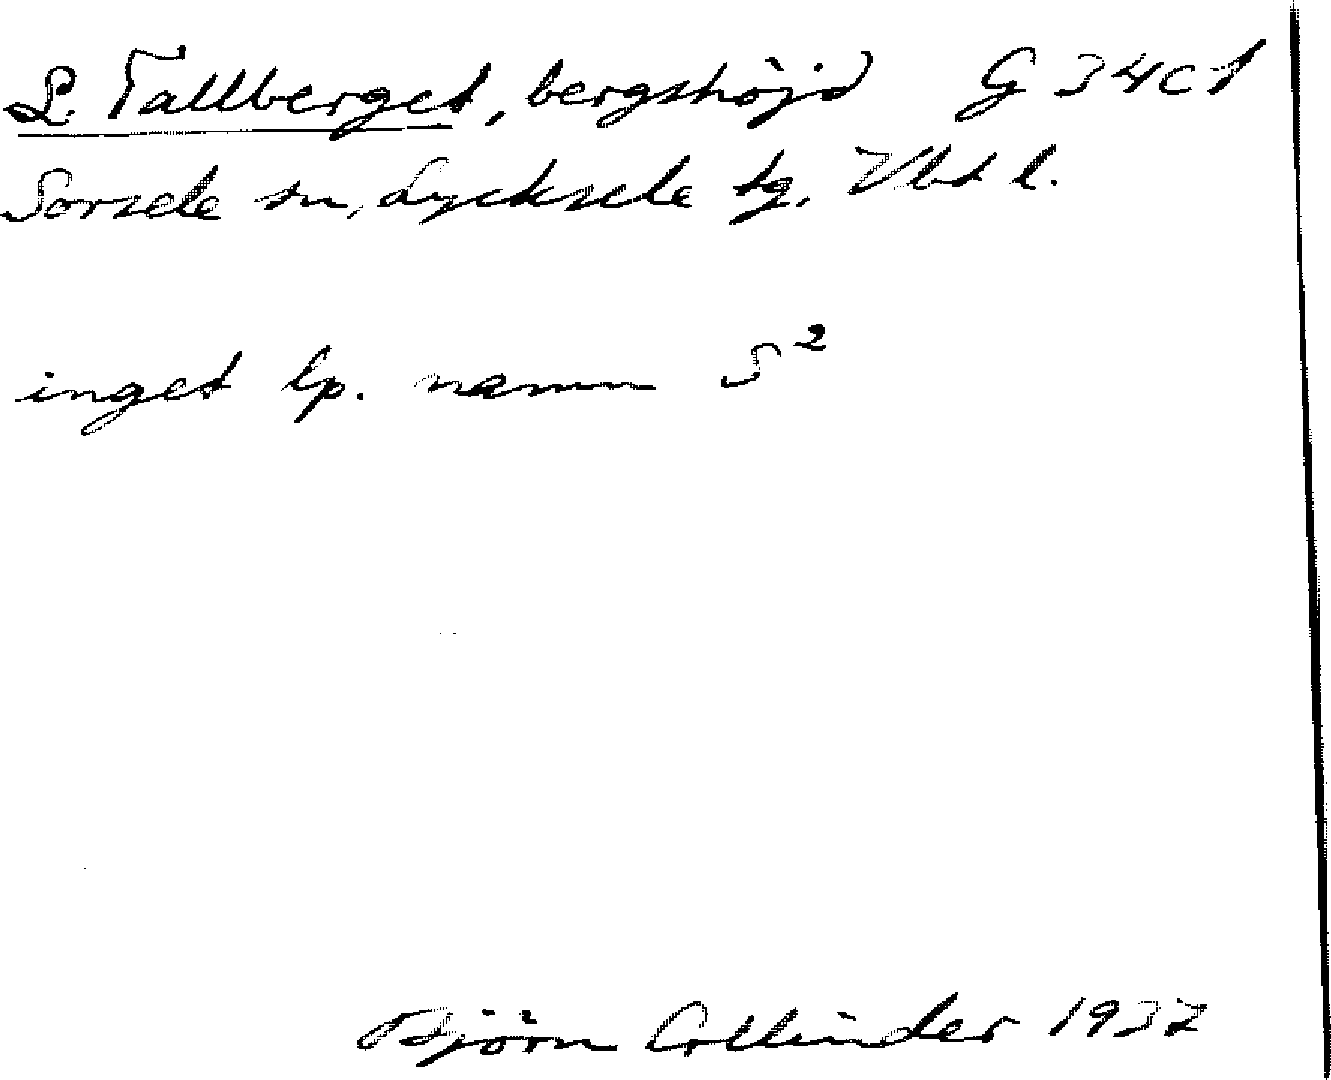 L. Tallberget, bergshöjd G 34c1
Sorsele sn, Lycksele tg. Vbt l.
inget lp. namn S²
Björn Collinder 1937